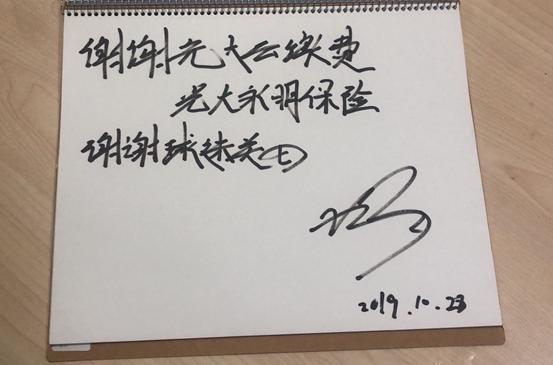 谢谢光大云缴费
光大永明保险
谢谢球迷关心
2019.10.23